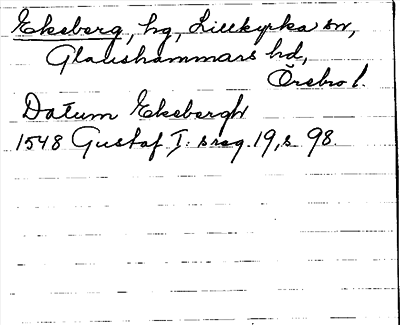 Ekeberg, hg, Lillkyrka sn,
Glanshammars hd,
Örebro l.
Datum Ekebergh
1548 Gustaf I: s reg. 19, s 98.